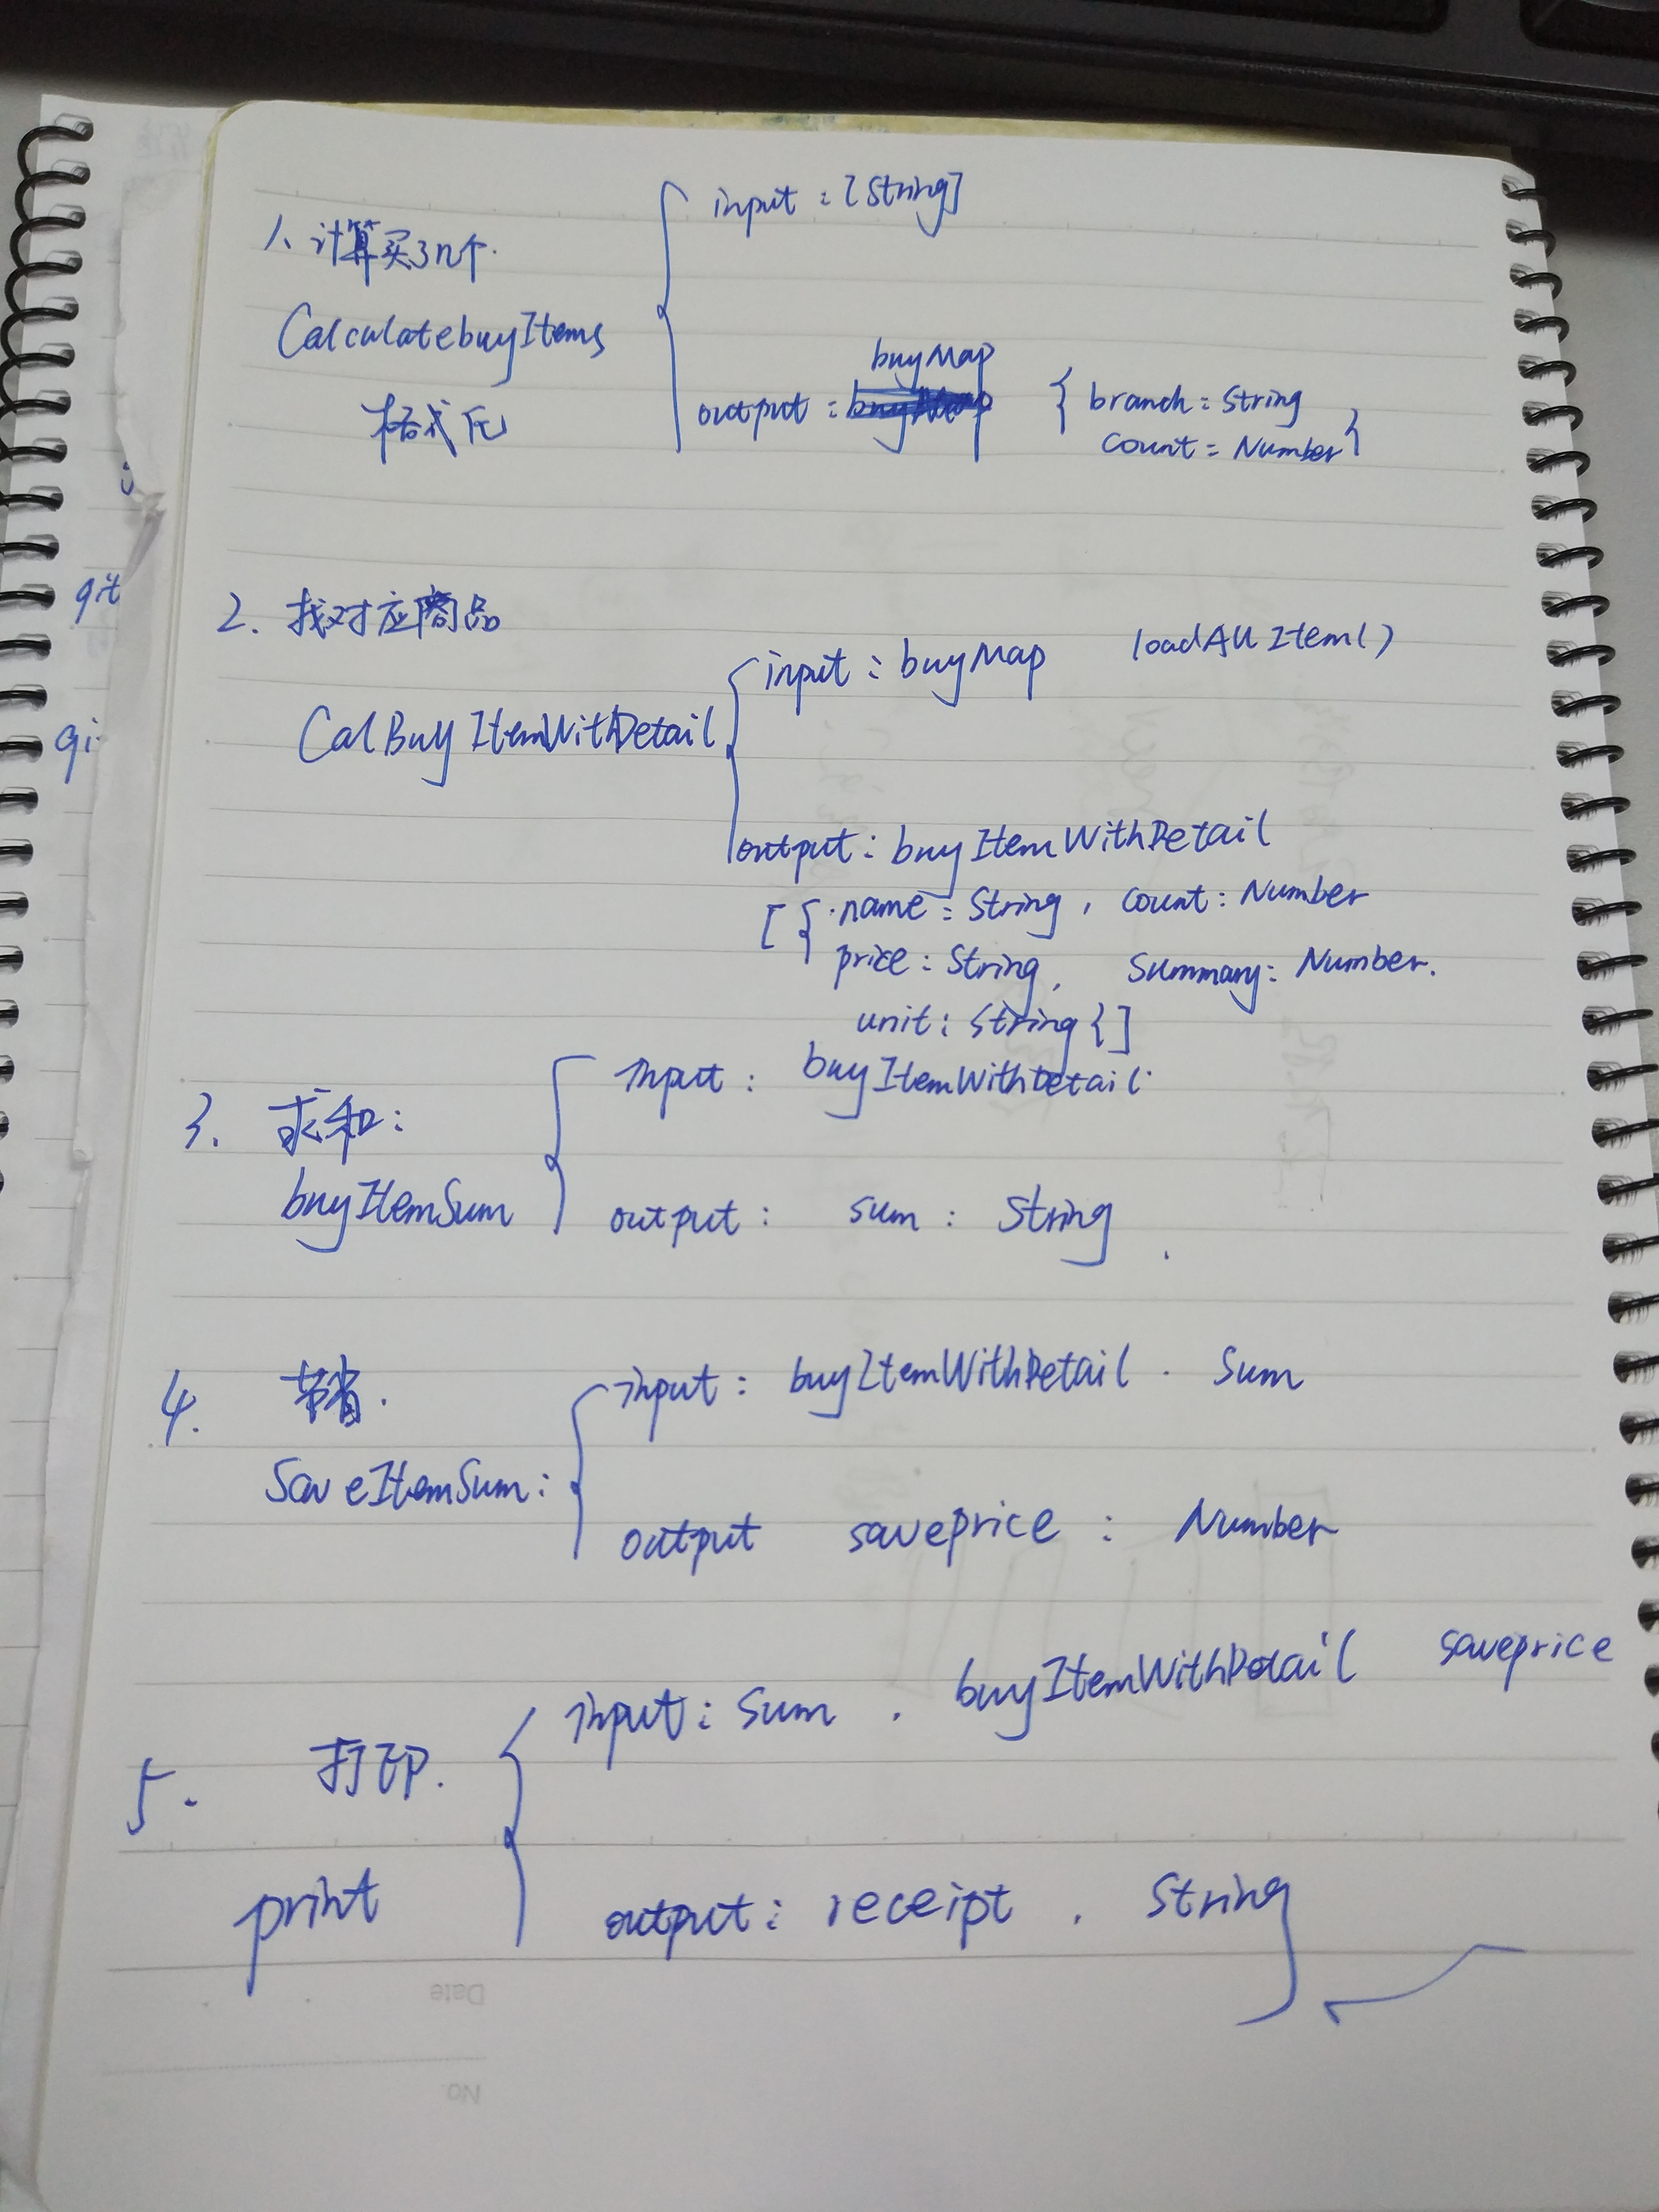 1、计算买了n个.
CalculatebuyItems
格式化
input : [String]
buyMap
output :
{ branch : String
count : Number }
2. 找对应商品
CalBuyItemWithDetail
input : buyMap loadAllItem()
output : buyItemWithDetail
[ { name : String , count : Number
price : String , Summary : Number.
unit : String } ]
3. 求和 :
buyItemSum
input : buyItemWithDetail
output : sum : String
4. 节省.
SaveItemSum :
input : buyItemWithDetail . Sum
output saveprice : Number
5. 打印.
print
input : Sum . buyItemWithDetail saveprice
output : receipt . String
git
Date
No.